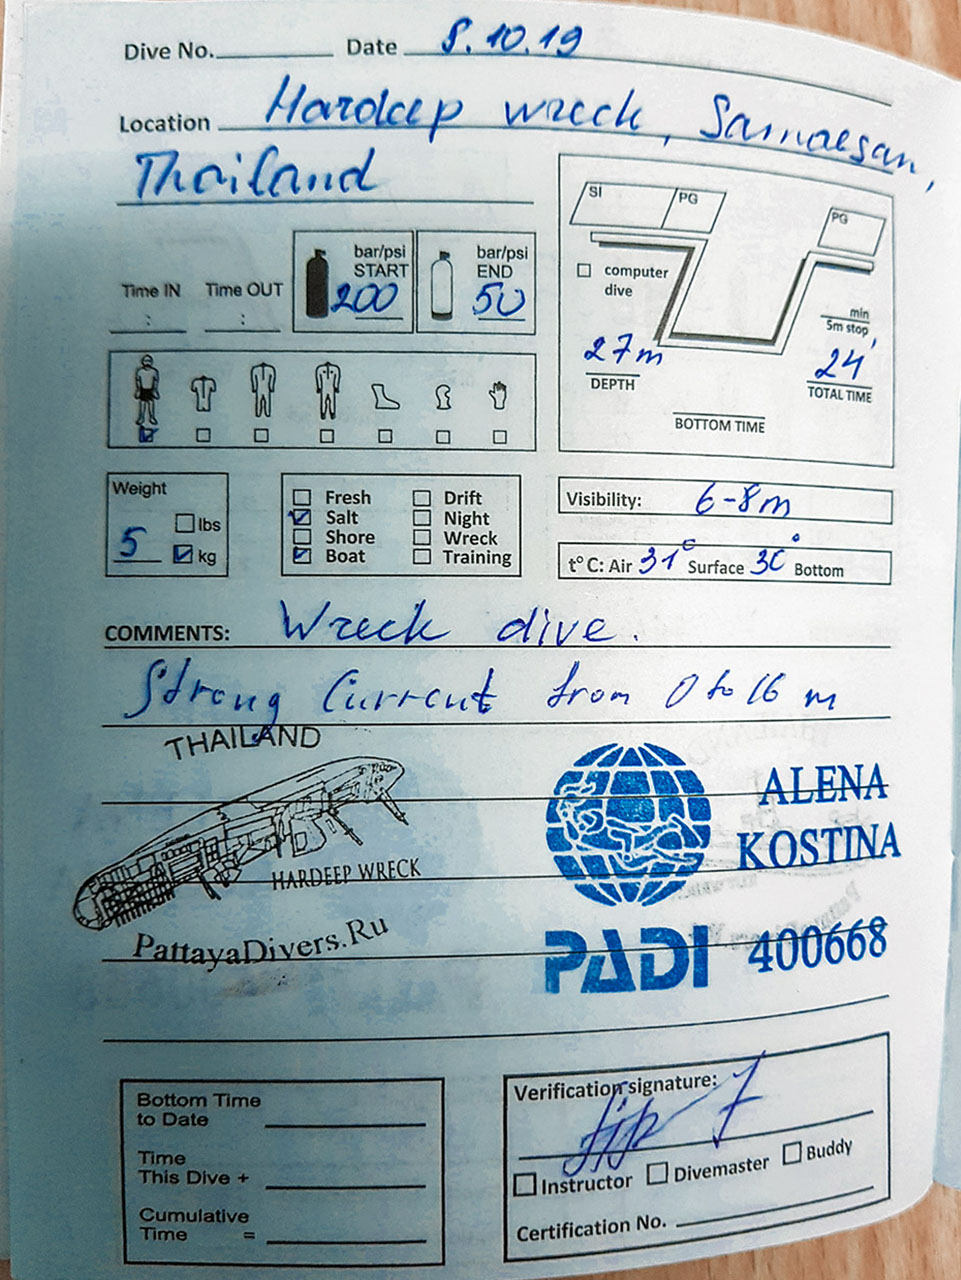 Dive No. Date 8.10.19
Location Hardeep wreck, Samaesan,
Thailand
Time IN Time OUT
: :
bar/psi START 200
bar/psi END 50
SI PG PG
computer dive
min
5m stop
27m
DEPTH
24'
TOTAL TIME
BOTTOM TIME
Weight
5 lbs
kg
Fresh Drift
Salt Night
Shore Wreck
Boat Training
Visibility: 6-8m
t° C: Air 31° Surface 30° Bottom
COMMENTS: Wreck dive.
Strong Current from 0 to 16 m
THAILAND
HARDEEP WRECK
PattayaDivers.Ru
ALENA
KOSTINA
PADI 400668
Bottom Time
to Date
Time
This Dive +
Cumulative
Time =
Verification signature:
Instructor Divemaster Buddy
Certification No.